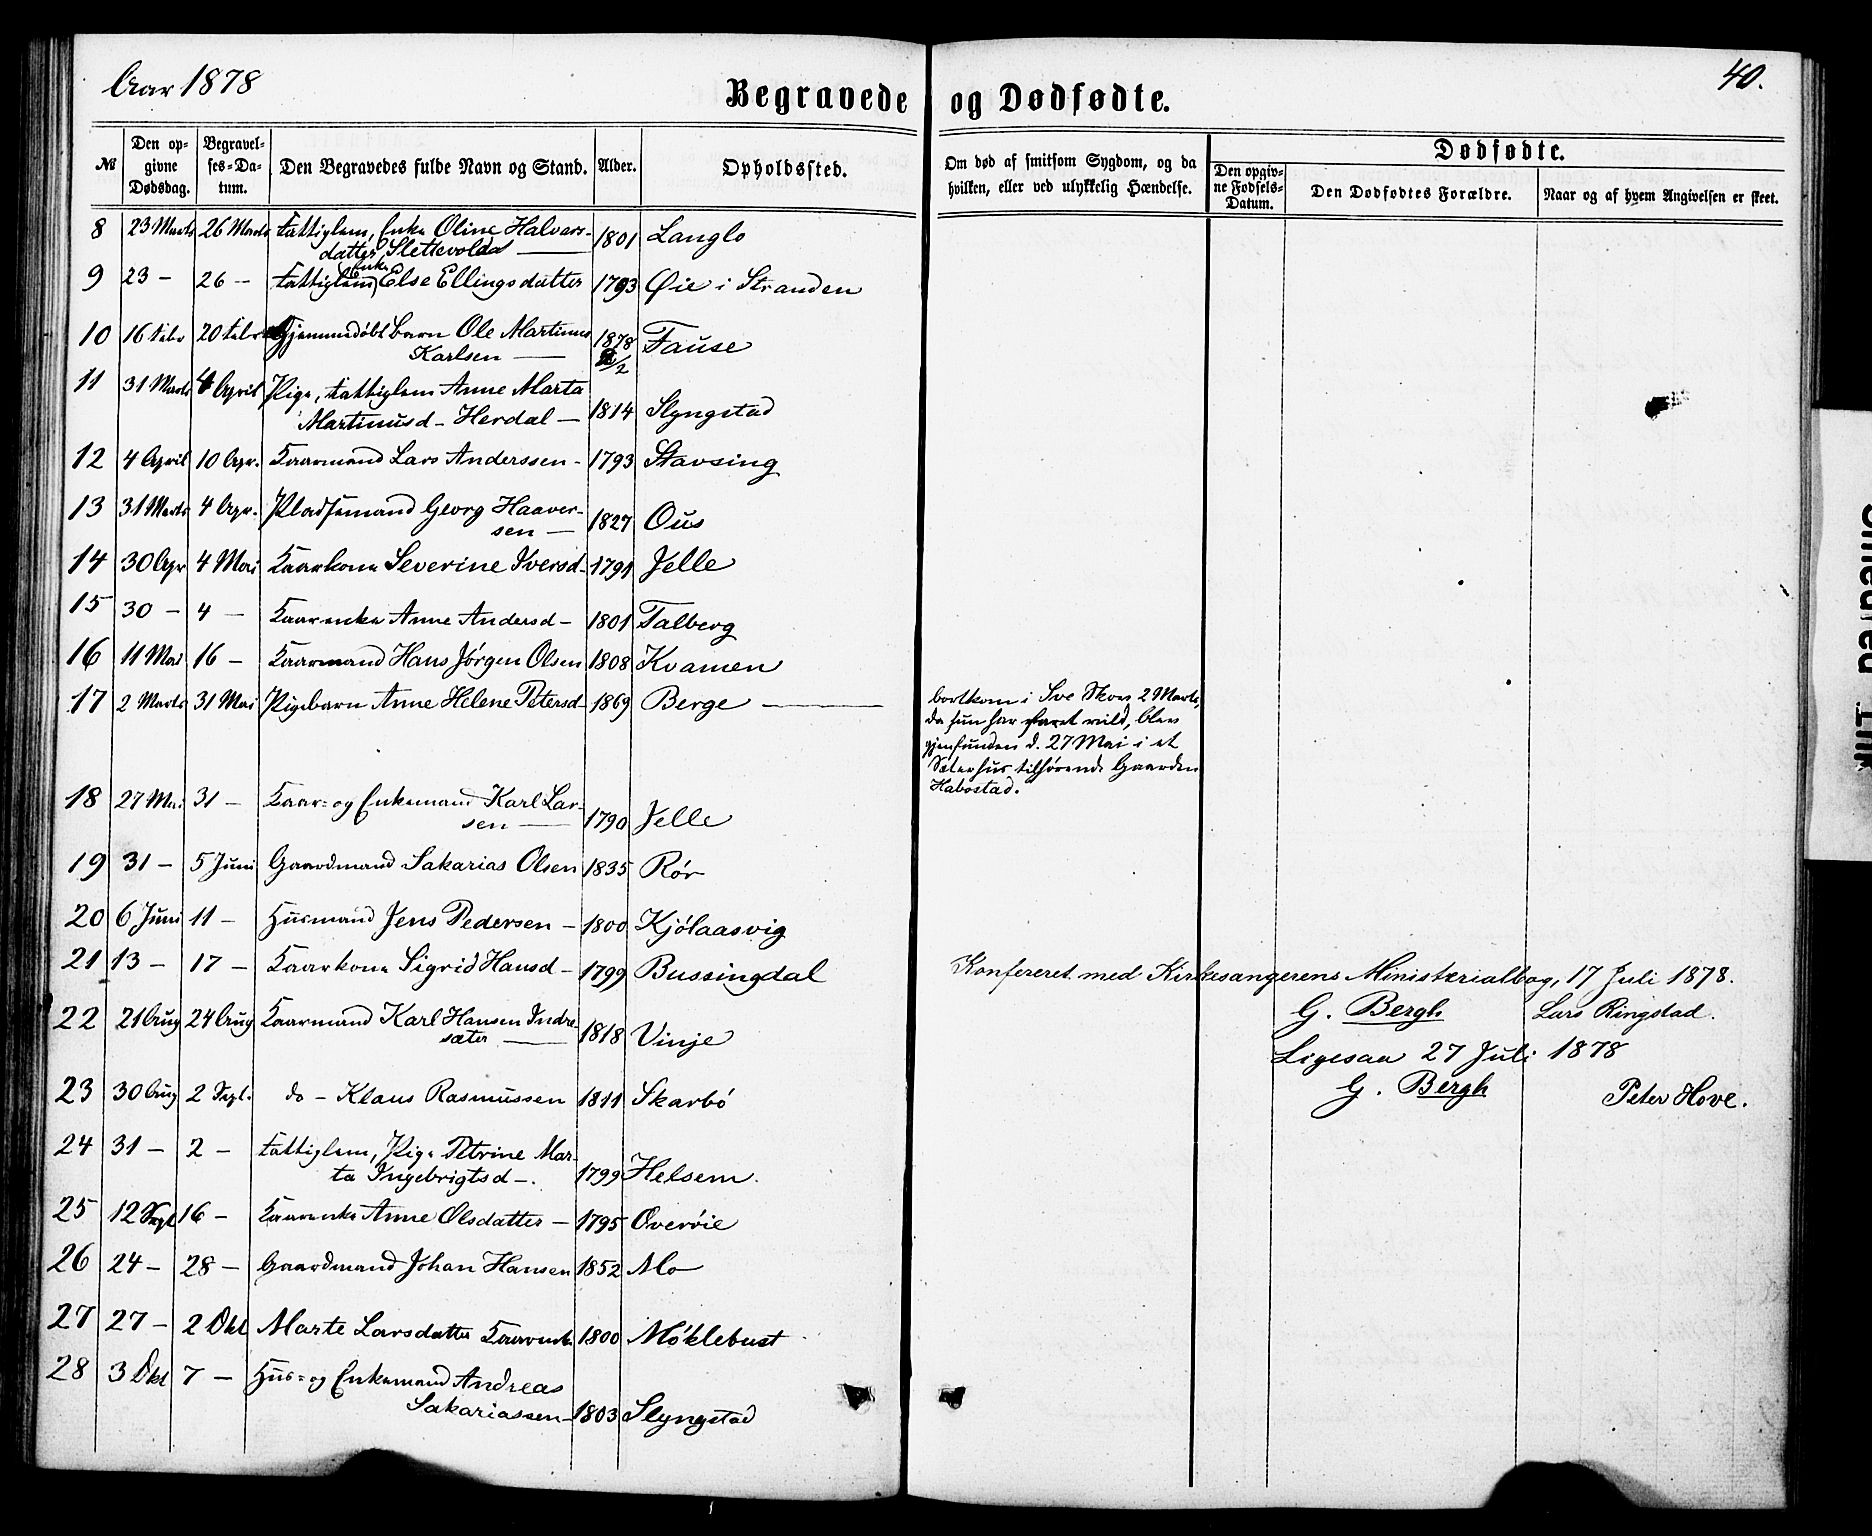 Aar 1878
Begravede og Dødfødte.
40.
№ Den opgivne Dødsdag. Begravelses-Datum. Den Begravedes fulde Navn og Stand. Alder. Opholdssted. Om død af smitsom Sygdom, og da hvilken, eller ved ulykkelig Hændelse. Dødfødte. Den opgivne Fødsels-Datum. Den Dødfødtes Forældre. Naar og af hvem Angivelsen er skeet.
8 23 Marts 26 Marts Fattiglem, Enke Oline Halvors-
datter Slettevold — 1801 Langlo
9 23 — 26 — Fattiglem, Enke Else Ellingsdatter 1793 Øie i Stranden
10 16 Febr 20 Febr Hjemmedøbt Barn Ole Martinus
Karlsen — 1878 /2 Fause
11 31 Marts 4 April Pige, Fattiglem Anne Marta
Martinusd- Herdal — 1814 Slyngstad
12 4 April 10 Apr. Kaarmand Lars Anderssen - 1793 Stavsing
13 31 Marts 4 Apr. Pladsemand Georg Haaver-
sen — 1827 Ous
14 30 Apr 4 Mai Kaarkone Severine Iversd- 1791 Jelle
15 30 — 4 — Kaarenke Anne Andersd - 1801 Talberg
16 11 Mai 16 — Kaarmand Hans Jørgen Olsen 1808 Kvamen
17 2 Marts 31 Mai Pigebarn Anne Helene Petersd- 1869 Berge —
bortkom i Sve Skov 2 Marts,
da hun har faret vild, blev
gjenfunden d. 27 Mai i et
Sæterhus tilhørende Gaarden
Habostad.
18 27 Mai 31 — Kaar- og Enkemand Karl Lar-
sen — 1790 Jelle
19 31 — 5 Juni Gaardmand Sakarias Olsen 1835 Rør
20 6 Juni 11 — Husmand Jens Pedersen — 1800 Kjølaasvig
21 13 — 17 — Kaarkone Sigrid Hansd - 1799 Bussingdal
Konfereret med Kirkesangerens Ministerialbog, 17 Juli 1878.
G. Bergh Lars Ringstad.
22 21 Aug 24 Aug Kaarmand Karl Hansen Indre-
sæter — 1818 Vinje
Ligesaa 27 Juli 1878
G. Bergh Peter Hove.
23 30 Aug 2 Sept. do - Klaus Rasmussen 1811 Skarbø
24 31 — 2 — Fattiglem, Pige Petrine Mar-
ta Ingebrigtsd -. 1799 Helsem.
25 12 Sept 16 — Kaarenke Anne Olsdatter — 1795 Overøie
26 24 — 28 — Gaardmand Johan Hansen 1852 Mo
27 27 — 2 Okt Marte Larsdatter Kaarenke 1800 Møklebust
28 3 Okt 7 — Hus- og Enkemand Andreas
Sakariassen - 1803 Slyngstad